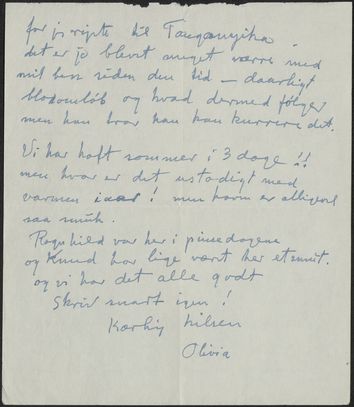 før jeg rejste til Tanganyika
det er jo blevet meget værre med
mit ben siden den tid – daarligt
blodomløb og hvad dermed følger
men kun hvor kan kurrere det.
Vi har haft sommer i 3 dage!!
men hvor er det ustadigt med
varmen iaar! men havn er alligevel
saa smuk.
Ragnhild var her i pinsedagene
og Knud har lige været her et smut.
og vi har det alle godt
Skriv snart igen!
Kærlig hilsen
Olivia